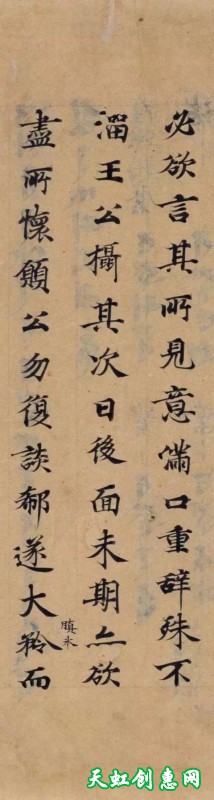 必欲言其所見意滿口重辭殊不
溜王公攝其次曰後面未期亦欲
盡所懷願公勿復談郗遂大瞋氷矜而
天虹创惠网